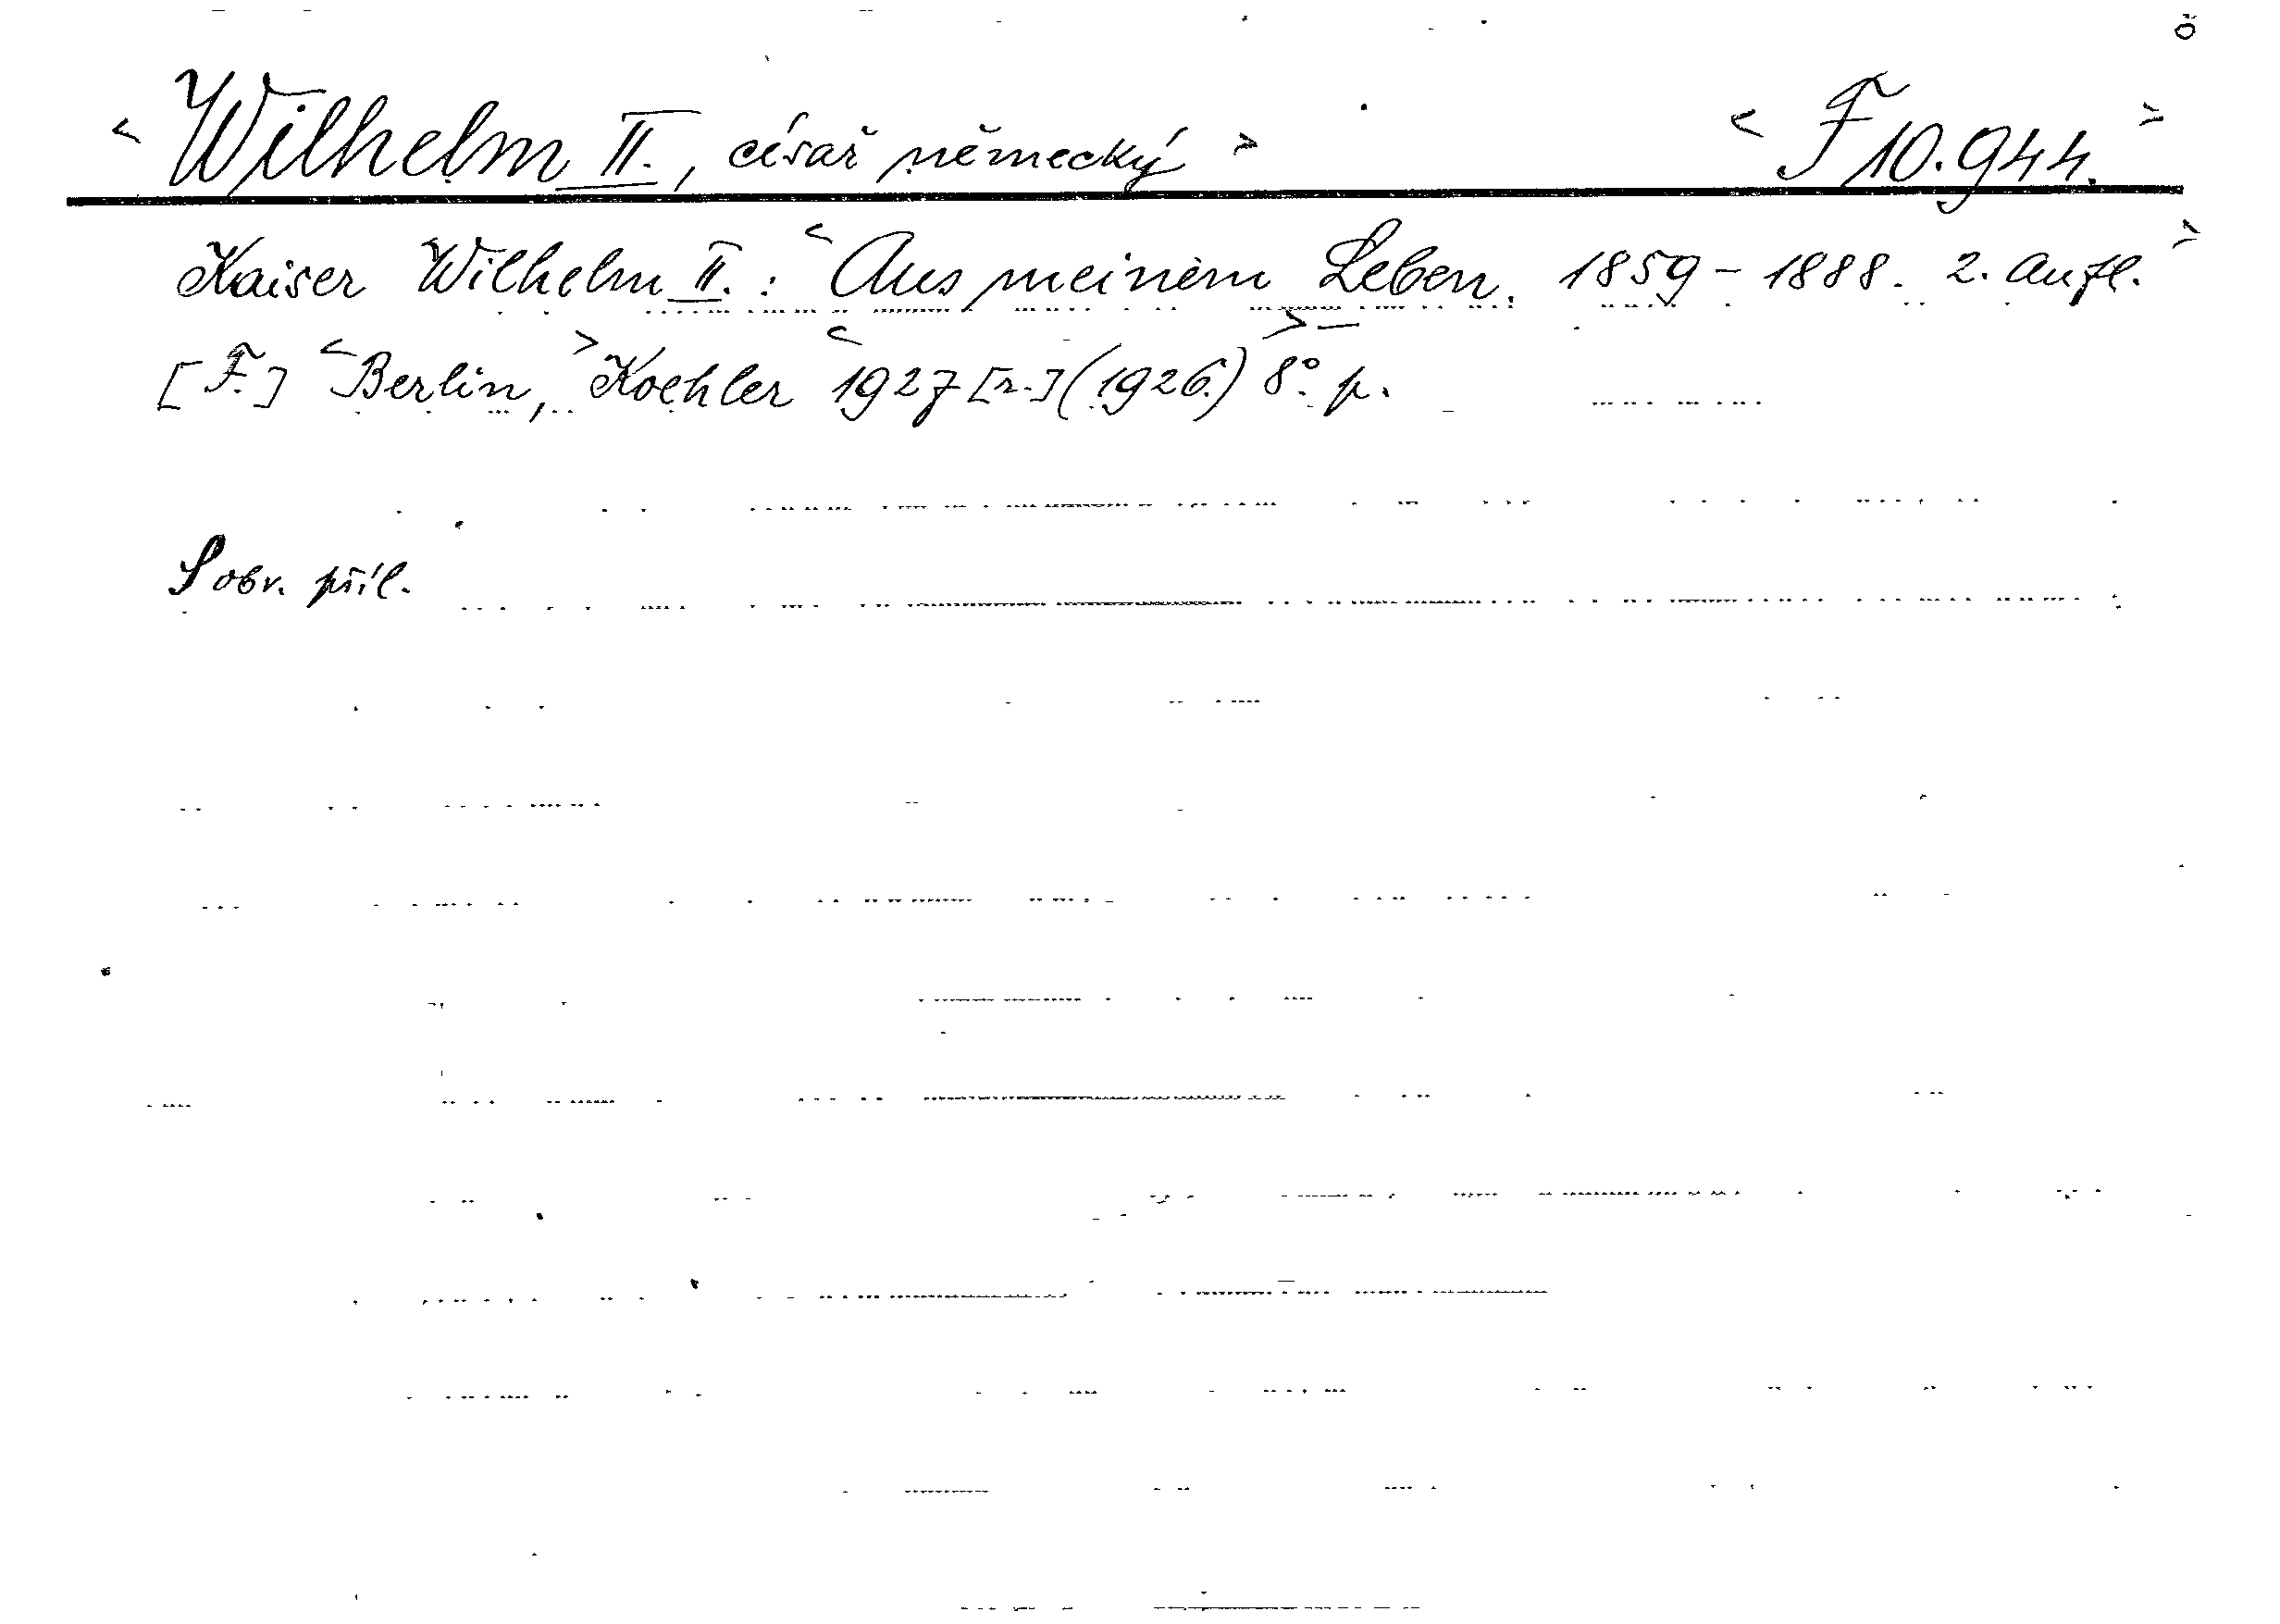 <Wilhelm II., císař německý> <F 10.944.>
Kaiser Wilhelm II.: <Aus meinem Leben. 1859-1888. 2. Aufl.>
[F.] <Berlin,> Koehler <1927 [r.] (1926.)> 8°. p.
S obr. příl.